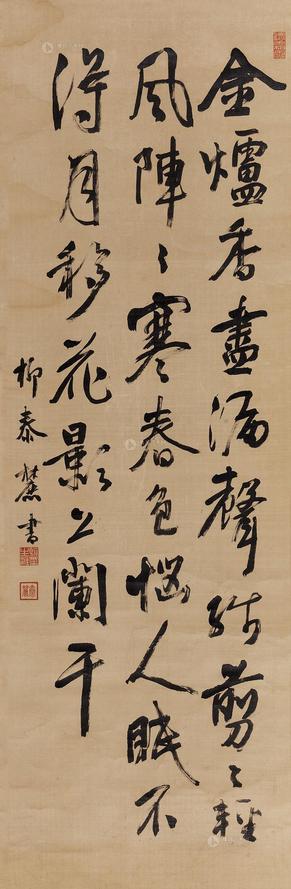 金爐香盡漏聲殘剪〻輕
風陣〻寒春色惱人眠不
得月移花影上闌干
柳泰書